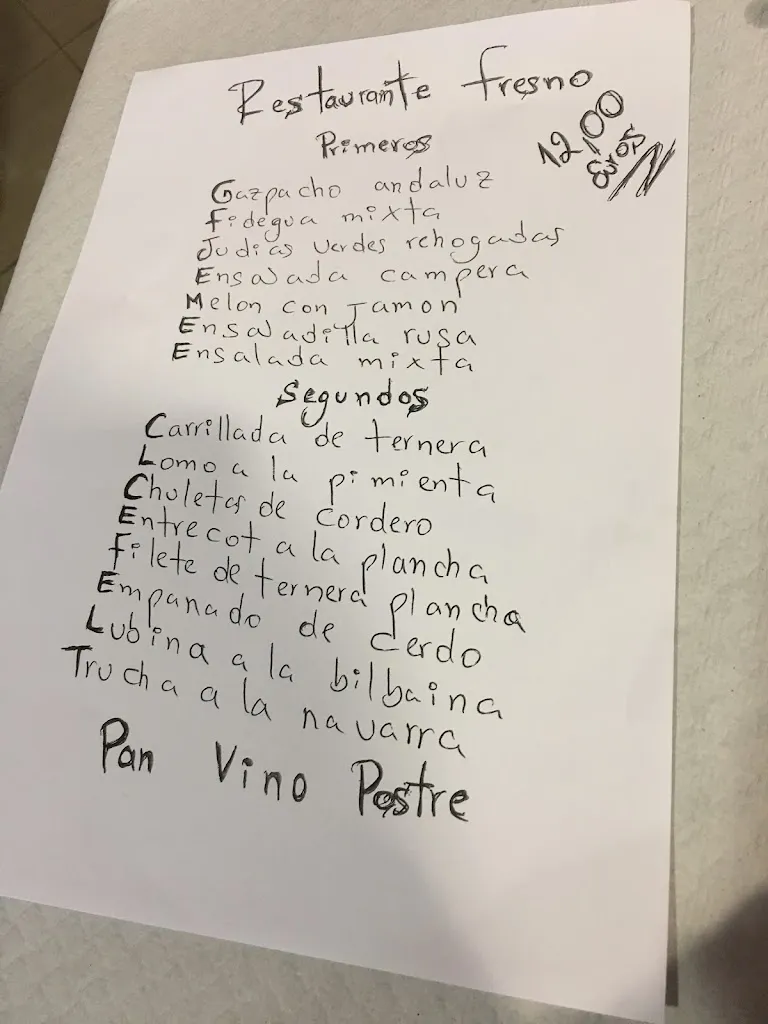 Restaurante fresno
12,00
Euros
Primeros
Gazpacho andaluz
fidegua mixta
Judias verdes rehogadas
Ensalada campera
Melon con Jamon
Ensaladilla rusa
Ensalada mixta
Segundos
Carrillada de ternera
Lomo a la pimienta
Chuletas de cordero
Entrecot a la plancha
filete de ternera plancha
Empanado de cerdo
Lubina a la bilbaina
Trucha a la navarra
Pan Vino Postre